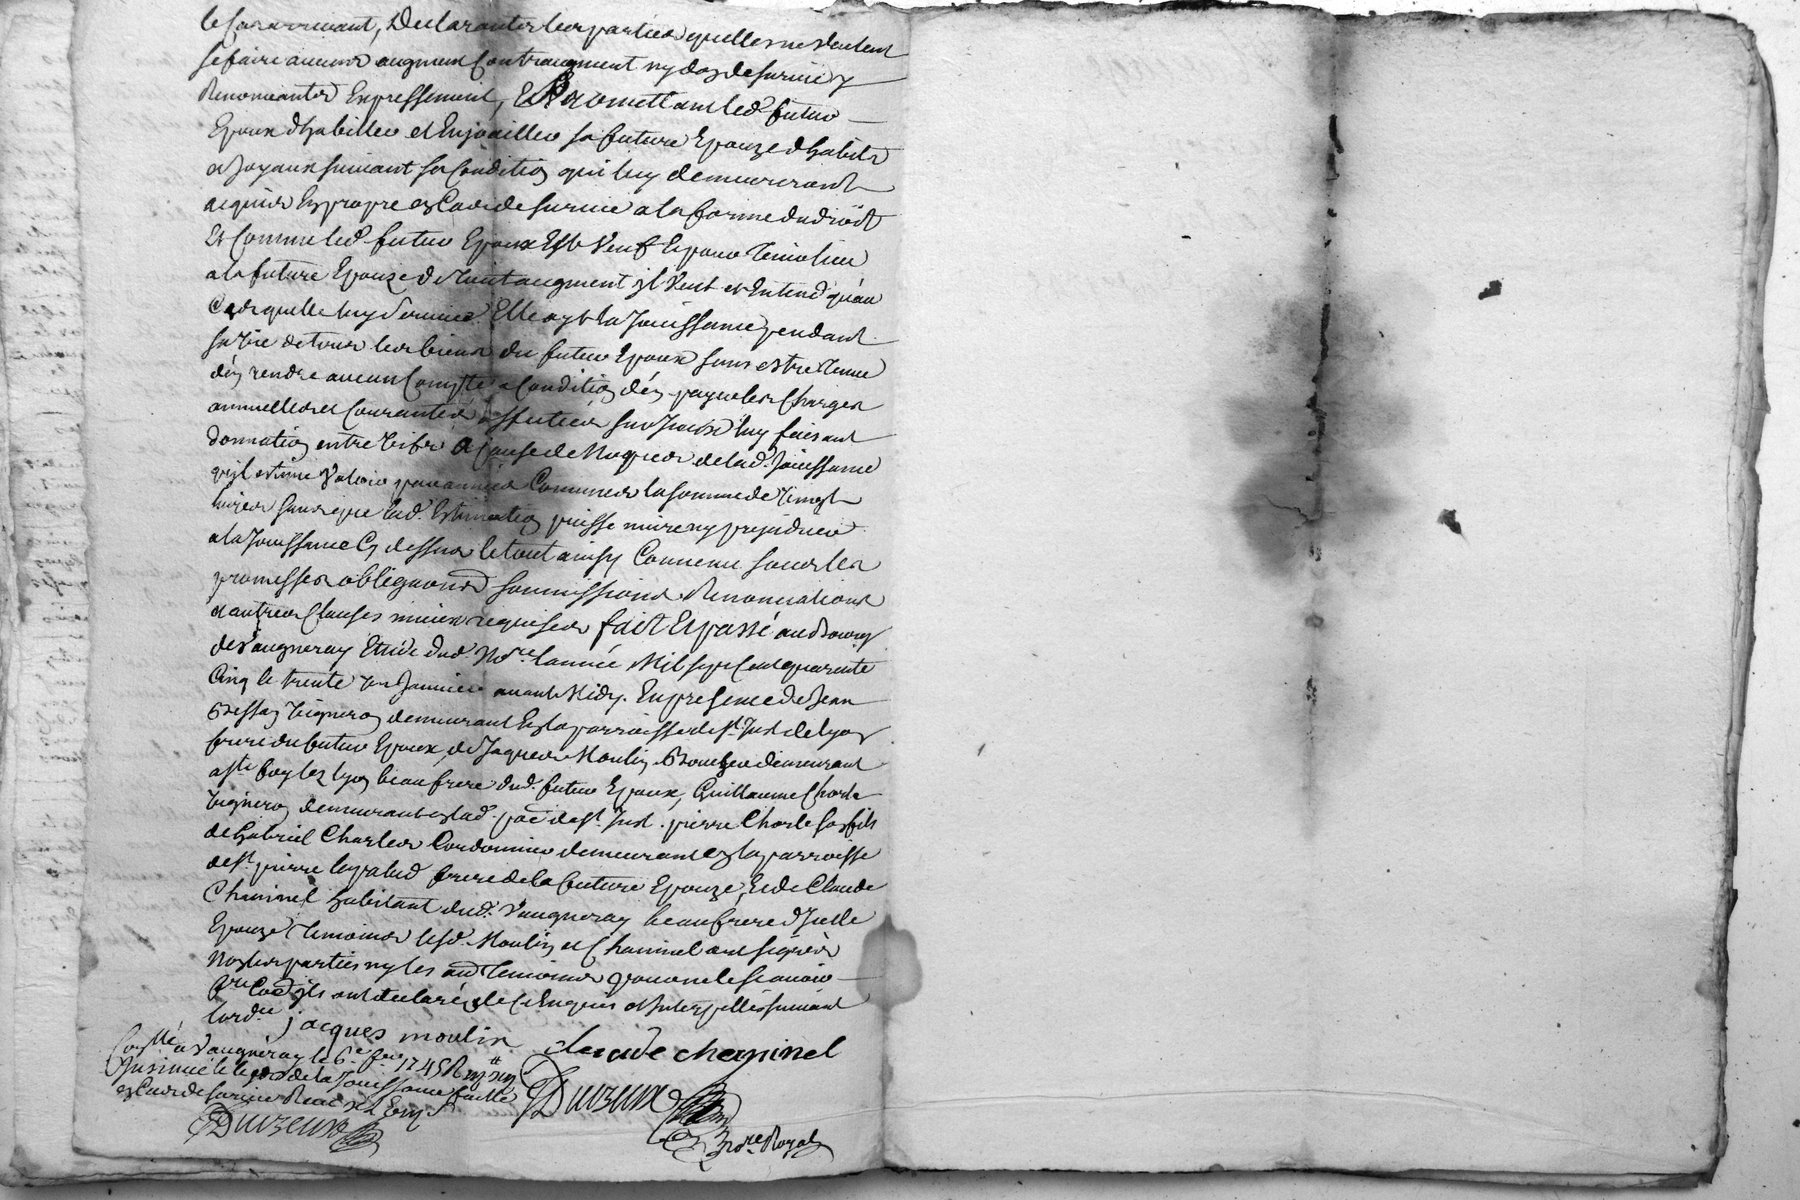 le Cas arrivant, Declarantes les parties quelles ne veulent
se faire aucuns augment Contraugment ny don de survie y
Renonceantes Expressement, Et Promettant led. futur
Epoux d'habiller et Enjoailler sa future Epouze d'habits
et Joyaux suivant sa Condition qui luy demeureront
acquis En propre en Cas de survie a la forme du droit
Et Comme led. futur Epoux Est Veuf Et pour tenir lieu
a la future Epouze de tout augment Il Veut et Entend qu'au
Cas quelle luy survive Elle ayt la Jouissance pendant
sa Vie de tous les biens du futur Epoux sans estre tenue
d'en rendre aucun Compte a Condition d'en payer les Charges
annuelles et Courantes affectées sur Iceux luy faisant
donnation entre Vifs a Cause de Nopces de lad. Jouissance
qu'il estime Valoir par années Communes la somme de Vingt
livres sans que lad. Estimation puisse nuire ny prejudicier
a la Jouissance Cy dessus le tout ainsy Convenu sous les
promesses obligations soumissions Renonciations
et autres Clauses mieux requises fait Et passé au Bourg
de Vaugneray Etude dud. Nore. l'année Mil sept Cent quarante
Cinq le trente un Janvier avant Midy. En presence de Jean
Bessay Vigneron demeurant En la parroisse de st. Just de lyon
frere du futur Epoux, de Jaques Moulin Boucher demeurant
a ste. foy les lyon beaufrere dud. futur Epoux, Guillaume Charle
Vigneron demeurant en lad. parr. de st. Just. pierre Charle son fils
de Gabriel Charles Cordonnier demeurant en la parroisse
de st. pierre la palud frere de la future Epouze, Et de Claude
Chaninel habitant dud. Vaugneray beaufrere d'Icelle
Epouze temoins lesd. Moulin et Chaninel ont signé
Non les parties ny les aud. temoins pour ne le scavoir
pr. Ce qu'ils ont declaré de Ce Enquis et Interpellés suivant
lordce. jacques moulin claude chaninel
Conllé a Vaugneray le 6e. fev. 1745 R
Insinué le legs de la Jouissance faitte
en Cas de survie Recu
Duizeux
Duizeux
Nore. Royal